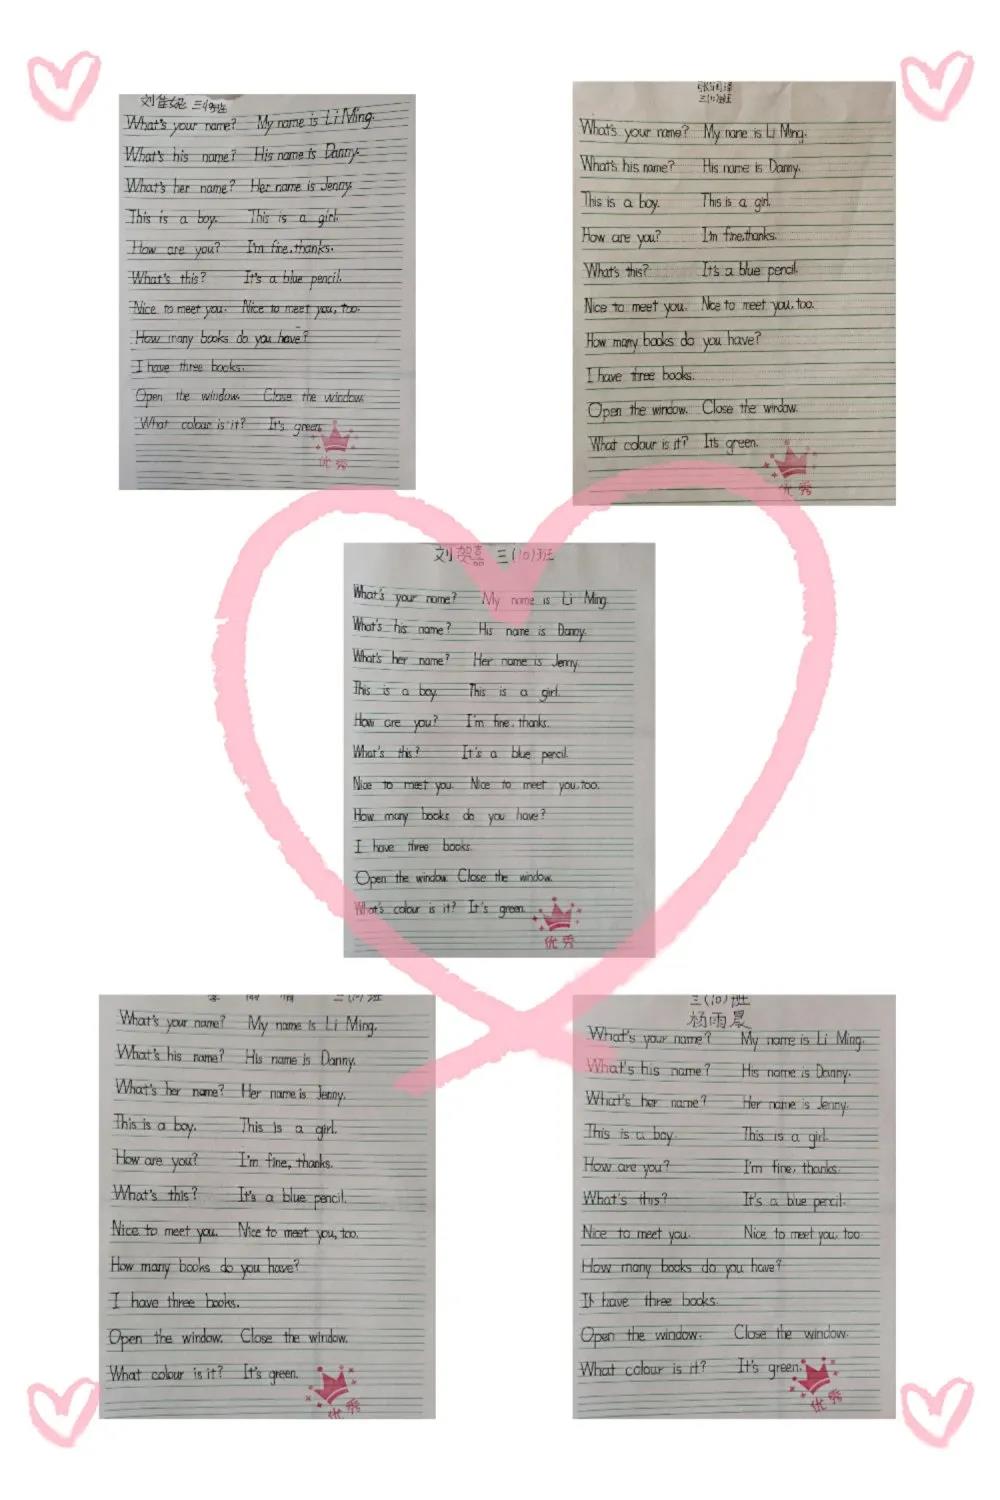 刘佳妮 三
What's your name? My name is Li Ming.
What's his name? His name is Danny.
What's her name? Her name is Jenny.
This is a boy. This is a girl.
How are you? I'm fine, thanks.
What's this? It's a blue pencil.
Nice to meet you. Nice to meet you, too.
How many books do you have?
I have three books.
Open the window. Close the window.
What colour is it? It's green.
优秀
三(10)班
What's your name? My name is Li Ming.
What's his name? His name is Danny.
This is a boy. This is a girl.
How are you? I'm fine, thanks.
What's this? It's a blue pencil.
Nice to meet you. Nice to meet you, too.
How many books do you have?
I have three books.
Open the window. Close the window.
What colour is it? It's green.
优秀
刘贺嘉 三(10)班
What's your name? My name is Li Ming.
What's his name? His name is Danny.
What's her name? Her name is Jenny.
This is a boy. This is a girl.
How are you? I'm fine, thanks.
What's this? It's a blue pencil.
Nice to meet you. Nice to meet you, too.
How many books do you have?
I have three books.
Open the window. Close the window.
What's colour is it? It's green.
优秀
三(10)班
What's your name? My name is Li Ming.
What's his name? His name is Danny.
What's her name? Her name is Jenny.
This is a boy. This is a girl.
How are you? I'm fine, thanks.
What's this? It's a blue pencil.
Nice to meet you. Nice to meet you, too.
How many books do you have?
I have three books.
Open the window. Close the window.
What colour is it? It's green.
优秀
三(10)班
杨雨晨
What's your name? My name is Li Ming.
What's his name? His name is Danny.
What's her name? Her name is Jenny.
This is a boy. This is a girl.
How are you? I'm fine, thanks.
What's this? It's a blue pencil.
Nice to meet you. Nice to meet you, too.
How many books do you have?
I have three books.
Open the window. Close the window.
What colour is it? It's green.
优秀